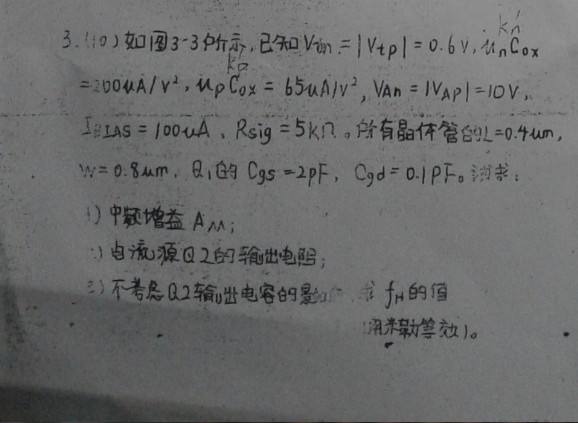 kn'
3.(10) 如图3-3所示,已知Vtn=|Vtp|=0.6V,μnCox
kp'
=200uA/V²,μpCox=65uA/V²,VAn=|VAp|=10V,
IBIAS=100uA、Rsig=5kΩ。所有晶体管的L=0.4um,
W=0.8um,Q1的Cgs=2pF,Cgd=0.1pF。试求:
1)中频增益AM;
2)电流源Q2的输出电阻;
3)不考虑Q2输出电容的影响,求fH的值
用米勒等效)。